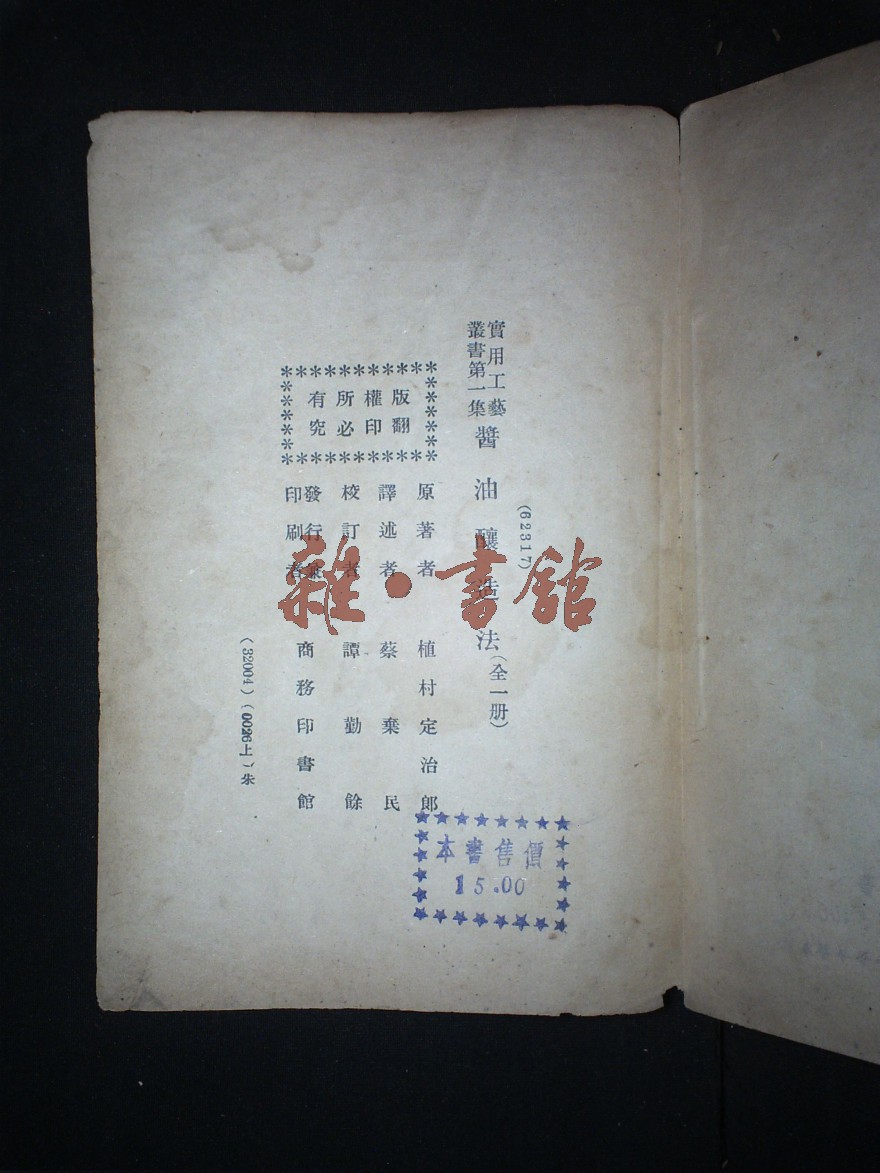 (62317)
實用工藝
叢書第一集
醬油釀造法(全一册)
版權所有
翻印必究
原著者 植村定治郎
譯述者 蔡棄民
校訂者 譚勤餘
發行兼
印刷者 商務印書館
(32004)(0026上)朱
本書售價
15.00
雜·書館